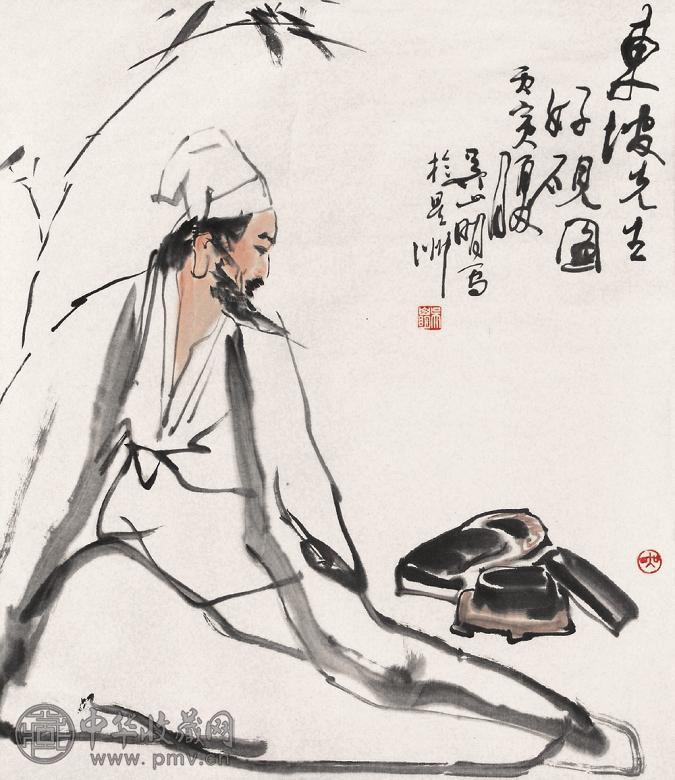 東坡先生
好硯圖
丙寅
吴山明写
於星洲
中华收藏网
www.pmv.cn